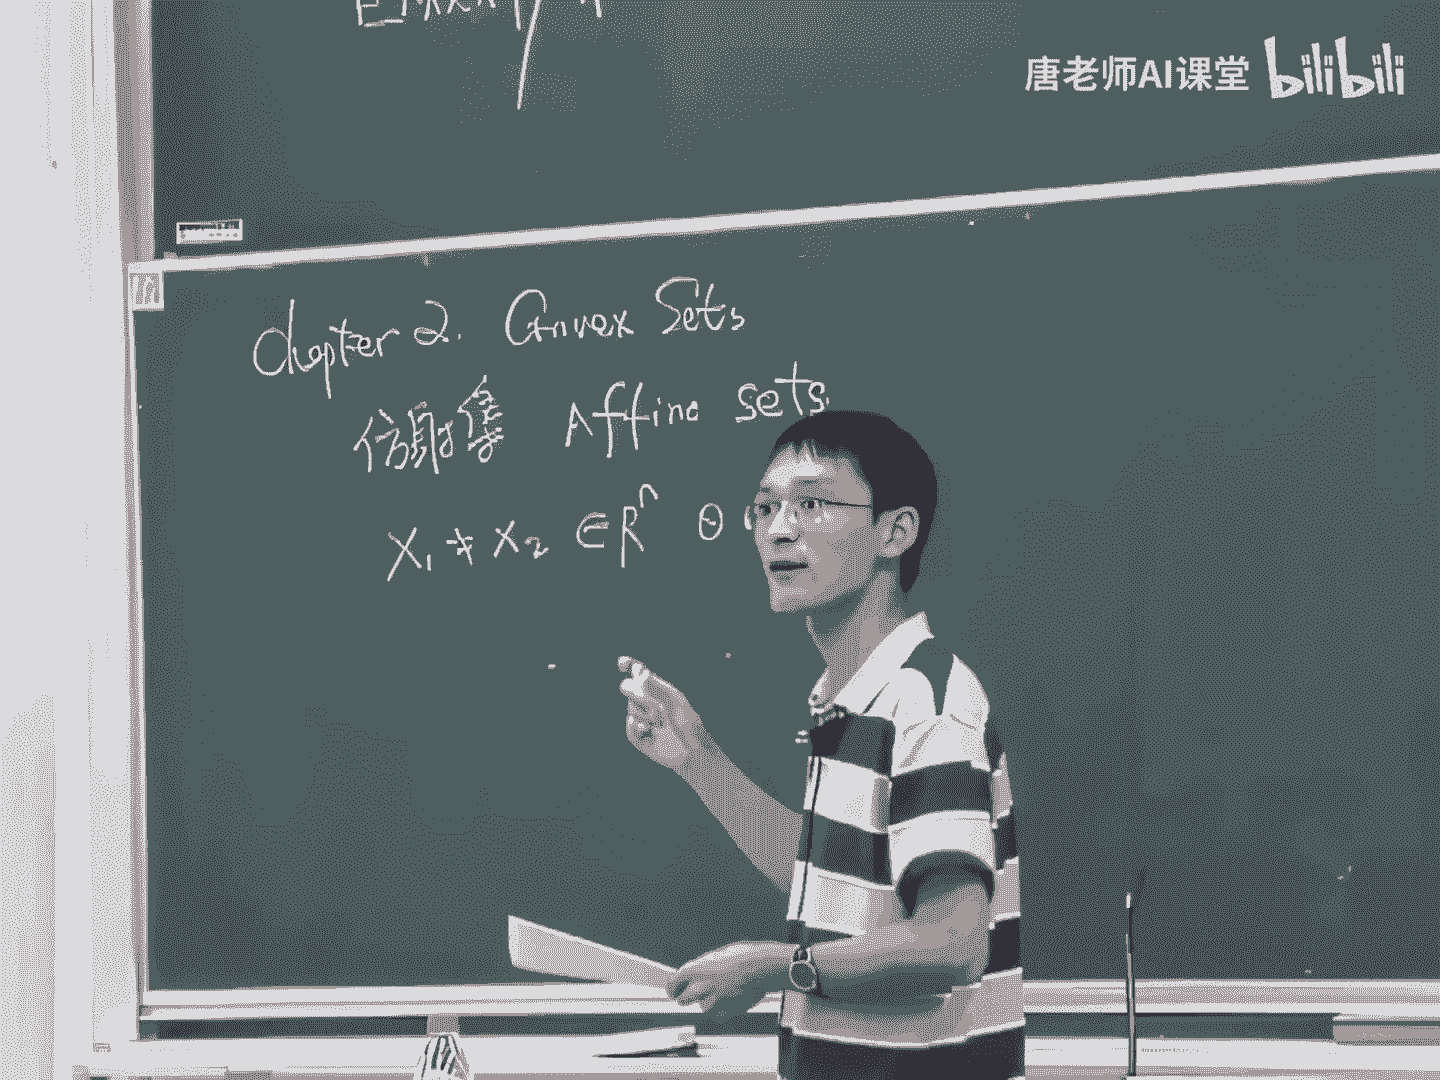 唐老师AI课堂 bilibili
Chapter 2. Convex Sets
仿射集 Affine sets
X₁ ≠ X₂ ∈ Rⁿ θ